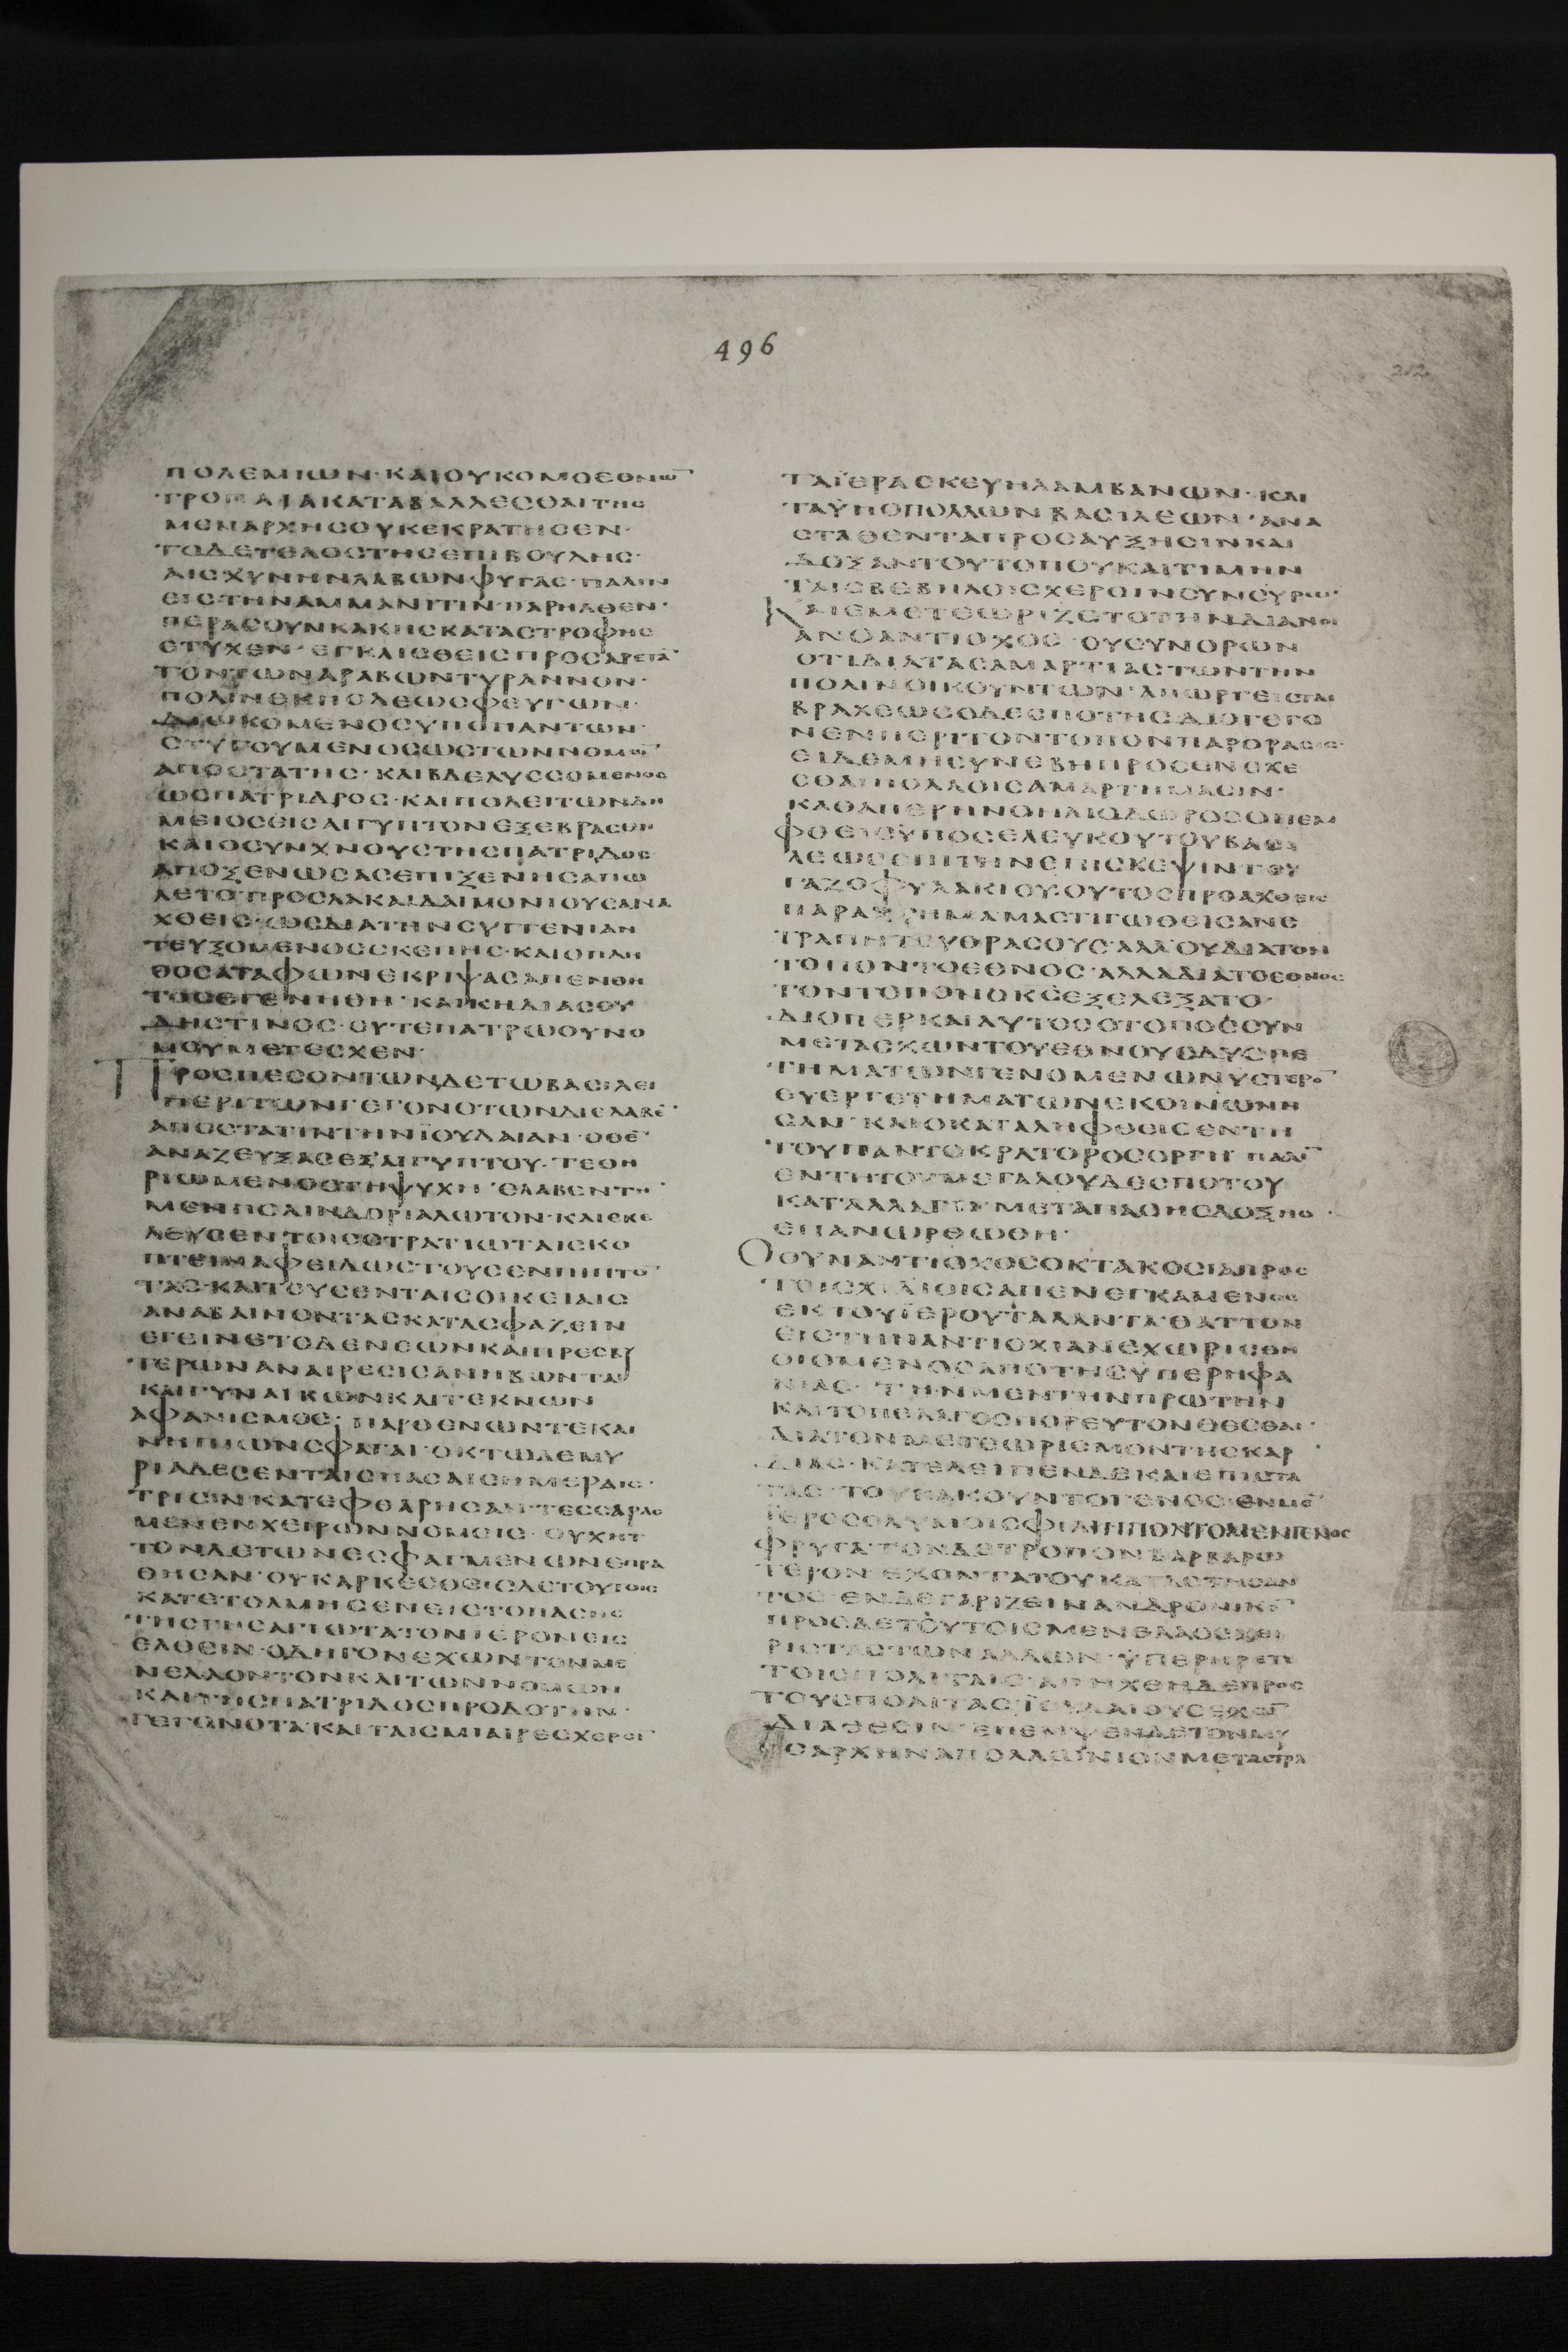 496
212
ΠΟΛΕΜΙΩΝ· ΚΑΙΟΥΚΟΜΟΕΘΝΩ̅
ΤΡΟΠΑΙΑΚΑΤΑΒΑΛΛΕΣΘΑΙΤΗΣ
ΜΕΝΑΡΧΗΣΟΥΚΕΚΡΑΤΗΣΕΝ·
ΤΟΔΕΤΕΛΟΣΤΗΣΕΠΙΒΟΥΛΗΣ·
ΑΙΣΧΥΝΗΝΛΑΒΩΝΦΥΓΑΣ·ΠΑΛΙΝ
ΕΙΣΤΗΝΑΜΜΑΝΙΤΙΝ·ΠΑΡΗΛΘΕΝ·
ΠΕΡΑΣΟΥΝΚΑΚΗΣΚΑΤΑΣΤΡΟΦΗΣ
ΕΤΥΧΕΝ· ΕΓΚΛΙΣΘΕΙΣΠΡΟΣΑΡΕΤΑ̅
ΤΟΝΤΩΝΑΡΑΒΩΝΤΥΡΑΝΝΟΝ·
ΠΟΛΙΝΕΚΠΟΛΕΩΣΦΕΥΓΩΝ·
ΔΙΩΚΟΜΕΝΟΣΥΠΟΠΑΝΤΩΝ·
ΣΤΥΓΟΥΜΕΝΟΣΩΣΤΩΝΝΟΜΩ̅
ΑΠΟΣΤΑΤΗΣ· ΚΑΙΒΔΕΛΥΣΣΟΜΕΝΟΣ
ΩΣΠΑΤΡΙΔΡΟΣ·ΚΑΙΠΟΛΕΙΤΩΝΔΗ
ΜΕΙΟΣΕΙΣΑΙΓΥΠΤΟΝΕΞΕΒΡΑΣΘΗ
ΚΑΙΟΣΥΝΧΝΟΥΣΤΗΣΠΑΤΡΙΔΟΣ
ΑΠΟΞΕΝΩΣΑΣΕΠΙΞΕΝΗΣΑΠΩ
ΛΕΤΟ·ΠΡΟΣΛΑΚΑΙΔΑΙΜΟΝΙΟΥΣΑΝΑ
ΧΘΕΙΣ·ΩΣΔΙΑΤΗΝΣΥΓΓΕΝΙΑΝ
ΤΕΥΞΟΜΕΝΟΣΣΚΕΠΗΣ·ΚΑΙΟΠΛΗ
ΘΟΣΑΤΑΦΩΝΕΚΡΙΨΑΣΑΠΕΝΘΗ
ΤΟΣΕΓΕΝΗΘΗ· ΚΑΙΚΗΔΙΑΣΟΥ
ΔΗΣΤΙΝΟΣ·ΟΥΤΕΠΑΤΡΩΟΥΝΟ
ΜΟΥΜΕΤΕΣΧΕΝ·
ΠΡΟΣΠΕΣΟΝΤΩΝΔΕΤΩΒΑΣΙΛΕΙ
ΠΕΡΙΤΩΝΓΕΓΟΝΟΤΩΝΔΙΕΛΑΒΕ̅
ΑΠΟΣΤΑΤΙΝΤΗΝΪΟΥΔΑΙΑΝ·ΟΘΕ̅
ΑΝΑΖΕΥΞΑΣΕΞΑΙΓΥΠΤΟΥ·ΤΕΘΗ
ΡΙΩΜΕΝΟΣΤΗΨΥΧΗ·ΕΛΑΒΕΝΤΗ̅
ΜΕΝΠΟΛΙΝΔΟΡΙΑΛΩΤΟΝ·ΚΑΙΕΚΕ
ΛΕΥΣΕΝΤΟΙΣΣΤΡΑΤΙΩΤΑΙΣΚΟ
ΠΤΕΙΝΑΦΕΙΔΩΣΤΟΥΣΕΝΠΙΠΤΟ̅
ΤΑΣ·ΚΑΙΤΟΥΣΕΝΤΑΙΣΟΙΚΕΙΑΙΣ
ΑΝΑΒΑΙΝΟΝΤΑΣΚΑΤΑΣΦΑΖΕΙΝ
ΕΓΕΙΝΕΤΟΔΕΝΕΩΝΚΑΙΠΡΕΣΒΥ
ΤΕΡΩΝΑΝΑΙΡΕΣΙΣΑΝΗΒΩΝΤΑΙ
ΚΑΙΓΥΝΑΙΚΩΝΚΑΙΤΕΚΝΩΝ
ΑΦΑΝΙΣΜΟΣ· ΠΑΡΘΕΝΩΝΤΕΚΑΙ
ΝΗΠΙΩΝΣΦΑΓΑΙ·ΟΚΤΩΔΕΜΥ
ΡΙΑΔΕΣΕΝΤΑΙΣΠΑΣΑΙΣΗΜΕΡΑΙΣ·
ΤΡΙΣΙΝΚΑΤΕΦΘΑΡΗΣΑΝ·ΤΕΣΣΑΡΑΣ
ΜΕΝΕΝΧΕΙΡΩΝΝΟΜΟΙΣ· ΟΥΧΗΤ
ΤΟΝΔΕΤΩΝΕΣΦΑΓΜΕΝΩΝΕΠΡΑ
ΘΗΣΑΝ·ΟΥΚΑΡΚΕΣΘΕΙΣΔΕΤΟΥΤΟΙΣ
ΚΑΤΕΤΟΛΜΗΣΕΝΕΙΣΤΟΠΑΣΗΣ
ΤΗΣΓΗΣΑΓΙΩΤΑΤΟΝΙΕΡΟΝΕΙΣ
ΕΛΘΕΙΝ·ΟΔΗΓΟΝΕΧΩΝΤΟΝΜΕ
ΝΕΛΑΟΝΤΟΝΚΑΙΤΩΝΝΟΜΩΝ
ΚΑΙΤΗΣΠΑΤΡΙΔΟΣΠΡΟΔΟΤΗΝ·
ΓΕΓΟΝΟΤΑ·ΚΑΙΤΑΙΣΜΙΑΙΡΕΣΧΕΡΣΙ̅
ΤΑΪΕΡΑΣΚΕΥΗΛΑΜΒΑΝΩΝ·ΚΑΙ
ΤΑΫΠΟΠΟΛΛΩΝΒΑΣΙΛΕΩΝ·ΑΝΑ
ΣΤΑΘΕΝΤΑΠΡΟΣΑΥΞΗΣΙΝΚΑΙ
ΔΟΞΑΝΤΟΥΤΟΠΟΥΚΑΙΤΙΜΗΝ
ΤΑΙΣΒΕΒΗΛΟΙΣΧΕΡΣΙΝΣΥΝΣΥΡΩ̅
ΚΑΙΕΜΕΤΕΩΡΙΖΕΤΟΤΗΝΔΙΑΝΟΙ
ΑΝΟΑΝΤΙΟΧΟΣ·ΟΥΣΥΝΟΡΩΝ
ΟΤΙΔΙΑΤΑΣΑΜΑΡΤΙΑΣΤΩΝΤΗΝ
ΠΟΛΙΝΟΙΚΟΥΝΤΩΝ·ΑΠΩΡΓΕΙΣΤΑΙ
ΒΡΑΧΕΩΣΟΔΕΣΠΟΤΗΣΔΙΟΓΕΓΟ
ΝΕΝΠΕΡΙΤΟΝΤΟΠΟΝΠΑΡΟΡΑΣΙΣ·
ΕΙΔΕΜΗΣΥΝΕΒΗΠΡΟΣΕΝΕΧΕ
ΣΘΑΙΠΟΛΛΟΙΣΑΜΑΡΤΗΜΑΣΙΝ·
ΚΑΘΑΠΕΡΗΝΟΗΛΙΟΔΩΡΟΣΟΠΕΜ
ΦΘΕΙΣΫΠΟΣΕΛΕΥΚΟΥΤΟΥΒΑΣΙ
ΛΕΩΣΕΠΙΤΗΝΕΠΙΣΚΕΨΙΝΤΟΥ
ΓΑΖΟΦΥΛΑΚΙΟΥ·ΟΥΤΟΣΠΡΟΑΧΘΕΙΣ
ΠΑΡΑΧΡΗΜΑΜΑΣΤΙΓΩΘΕΙΣΑΝΕ
ΤΡΑΠΗΤΟΥΘΡΑΣΟΥΣ·ΑΛΛΟΥΔΙΑΤΟΝ
ΤΟΠΟΝΤΟΕΘΝΟΣ·ΑΛΛΑΔΙΑΤΟΕΘΝΟΣ
ΤΟΝΤΟΠΟΝΟΚ̅Σ̅ΕΞΕΛΕΞΑΤΟ·
ΔΙΟΠΕΡΚΑΙΑΥΤΟΣΟΤΟΠΟΣΟΥΝ
ΜΕΤΑΣΧΩΝΤΟΥΕΘΝΟΥΣΔΥΣΠΕ
ΤΗΜΑΤΩΝΓΕΝΟΜΕΝΩΝΥΣΤΕΡΟ̅
ΕΥΕΡΓΕΤΗΜΑΤΩΝΕΚΟΙΝΩΝΗ
ΣΑΝ· ΚΑΙΟΚΑΤΑΛΗΦΘΕΙΣΕΝΤΗ
ΤΟΥΠΑΝΤΟΚΡΑΤΟΡΟΣΟΡΓΗ· ΠΑΛΙ̅
ΕΝΤΗΤΟΥΜΕΓΑΛΟΥΔΕΣΠΟΤΟΥ
ΚΑΤΑΛΛΑΓΗΜΕΤΑΠΑΣΗΣΔΟΞΗΣ·
ΕΠΑΝΩΡΘΩΘΗ·
ΟΟΥΝΑΝΤΙΟΧΟΣΟΚΤΑΚΟΣΙΑΠΡΟΣ
ΤΟΙΣΧΙΛΙΟΙΣΑΠΕΝΕΓΚΑΜΕΝΟΣ
ΕΚΤΟΥΪΕΡΟΥΤΑΛΑΝΤΑ·ΘΑΤΤΟΝ
ΕΙΣΤΗΝΑΝΤΙΟΧΙΑΝΕΧΩΡΙΣΘΗ
ΟΙΟΜΕΝΟΣΑΠΟΤΗΣΫΠΕΡΗΦΑ
ΝΙΑΣ· ΤΗΝΜΕΝΓΗΝΠΡΩΤΗΝ
ΚΑΙΤΟΠΕΛΑΓΟΣΠΟΡΕΥΤΟΝΘΕΣΘΑΙ·
ΔΙΑΤΟΝΜΕΤΕΩΡΙΣΜΟΝΤΗΣΚΑΡ
ΔΙΑΣ·ΚΑΤΕΛΕΙΠΕΝΔΕΚΑΙΕΠΙΣΤΑ
ΤΑΣ·ΤΟΥΚΑΚΟΥΝΤΟΓΕΝΟΣ·ΕΝΜΕ̅
ΪΕΡΟΣΟΛΥΜΟΙΣΦΙΛΗΠΠΟΝΤΟΜΕΝΓΕΝΟΣ
ΦΡΥΓΑ·ΤΟΝΔΕΤΡΟΠΟΝΒΑΡΒΑΡΩ
ΤΕΡΟΝ·ΕΧΟΝΤΑΤΟΥΚΑΤΑΣΤΗΣΑΝ
ΤΟΣ·ΕΝΔΕΓΑΡΙΖΕΙΝΑΝΔΡΟΝΙΚΟ̅
ΠΡΟΣΔΕΤΟΥΤΟΙΣΜΕΝΕΛΑΟΣΧΕΙ
ΡΙΣΤΑΣΤΩΝΑΛΛΩΝ·ΫΠΕΡΗΡΕΤΙ
ΤΟΙΣΠΟΛΙΤΑΙΣ·ΑΠΗΧΘΗΔΕΠΡΟΣ
ΤΟΥΣΠΟΛΙΤΑΣΪΟΥΔΑΙΟΥΣΕΧΩ̅
ΔΙΑΘΕΣΙΝ·ΕΠΕΜΨΕΝΔΕΤΟΝΜΥ
ΣΑΡΧΗΝΑΠΟΛΛΩΝΙΟΝΜΕΤΑΣΤΡΑ